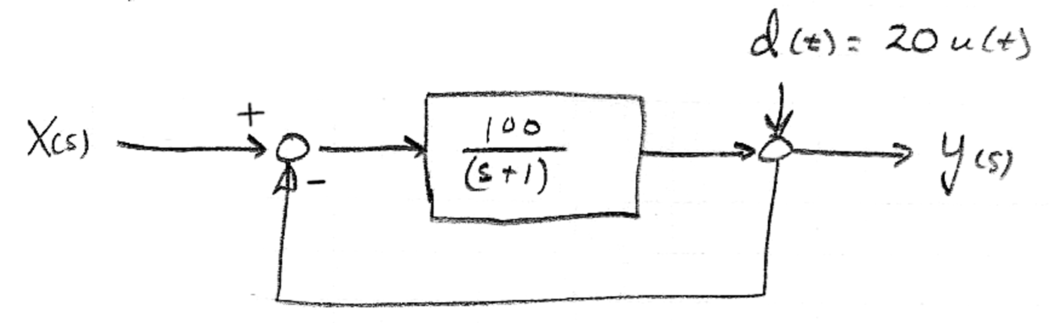 d(t) = 20 u(t)
X(s)
+
-
100
(s+1)
y(s)